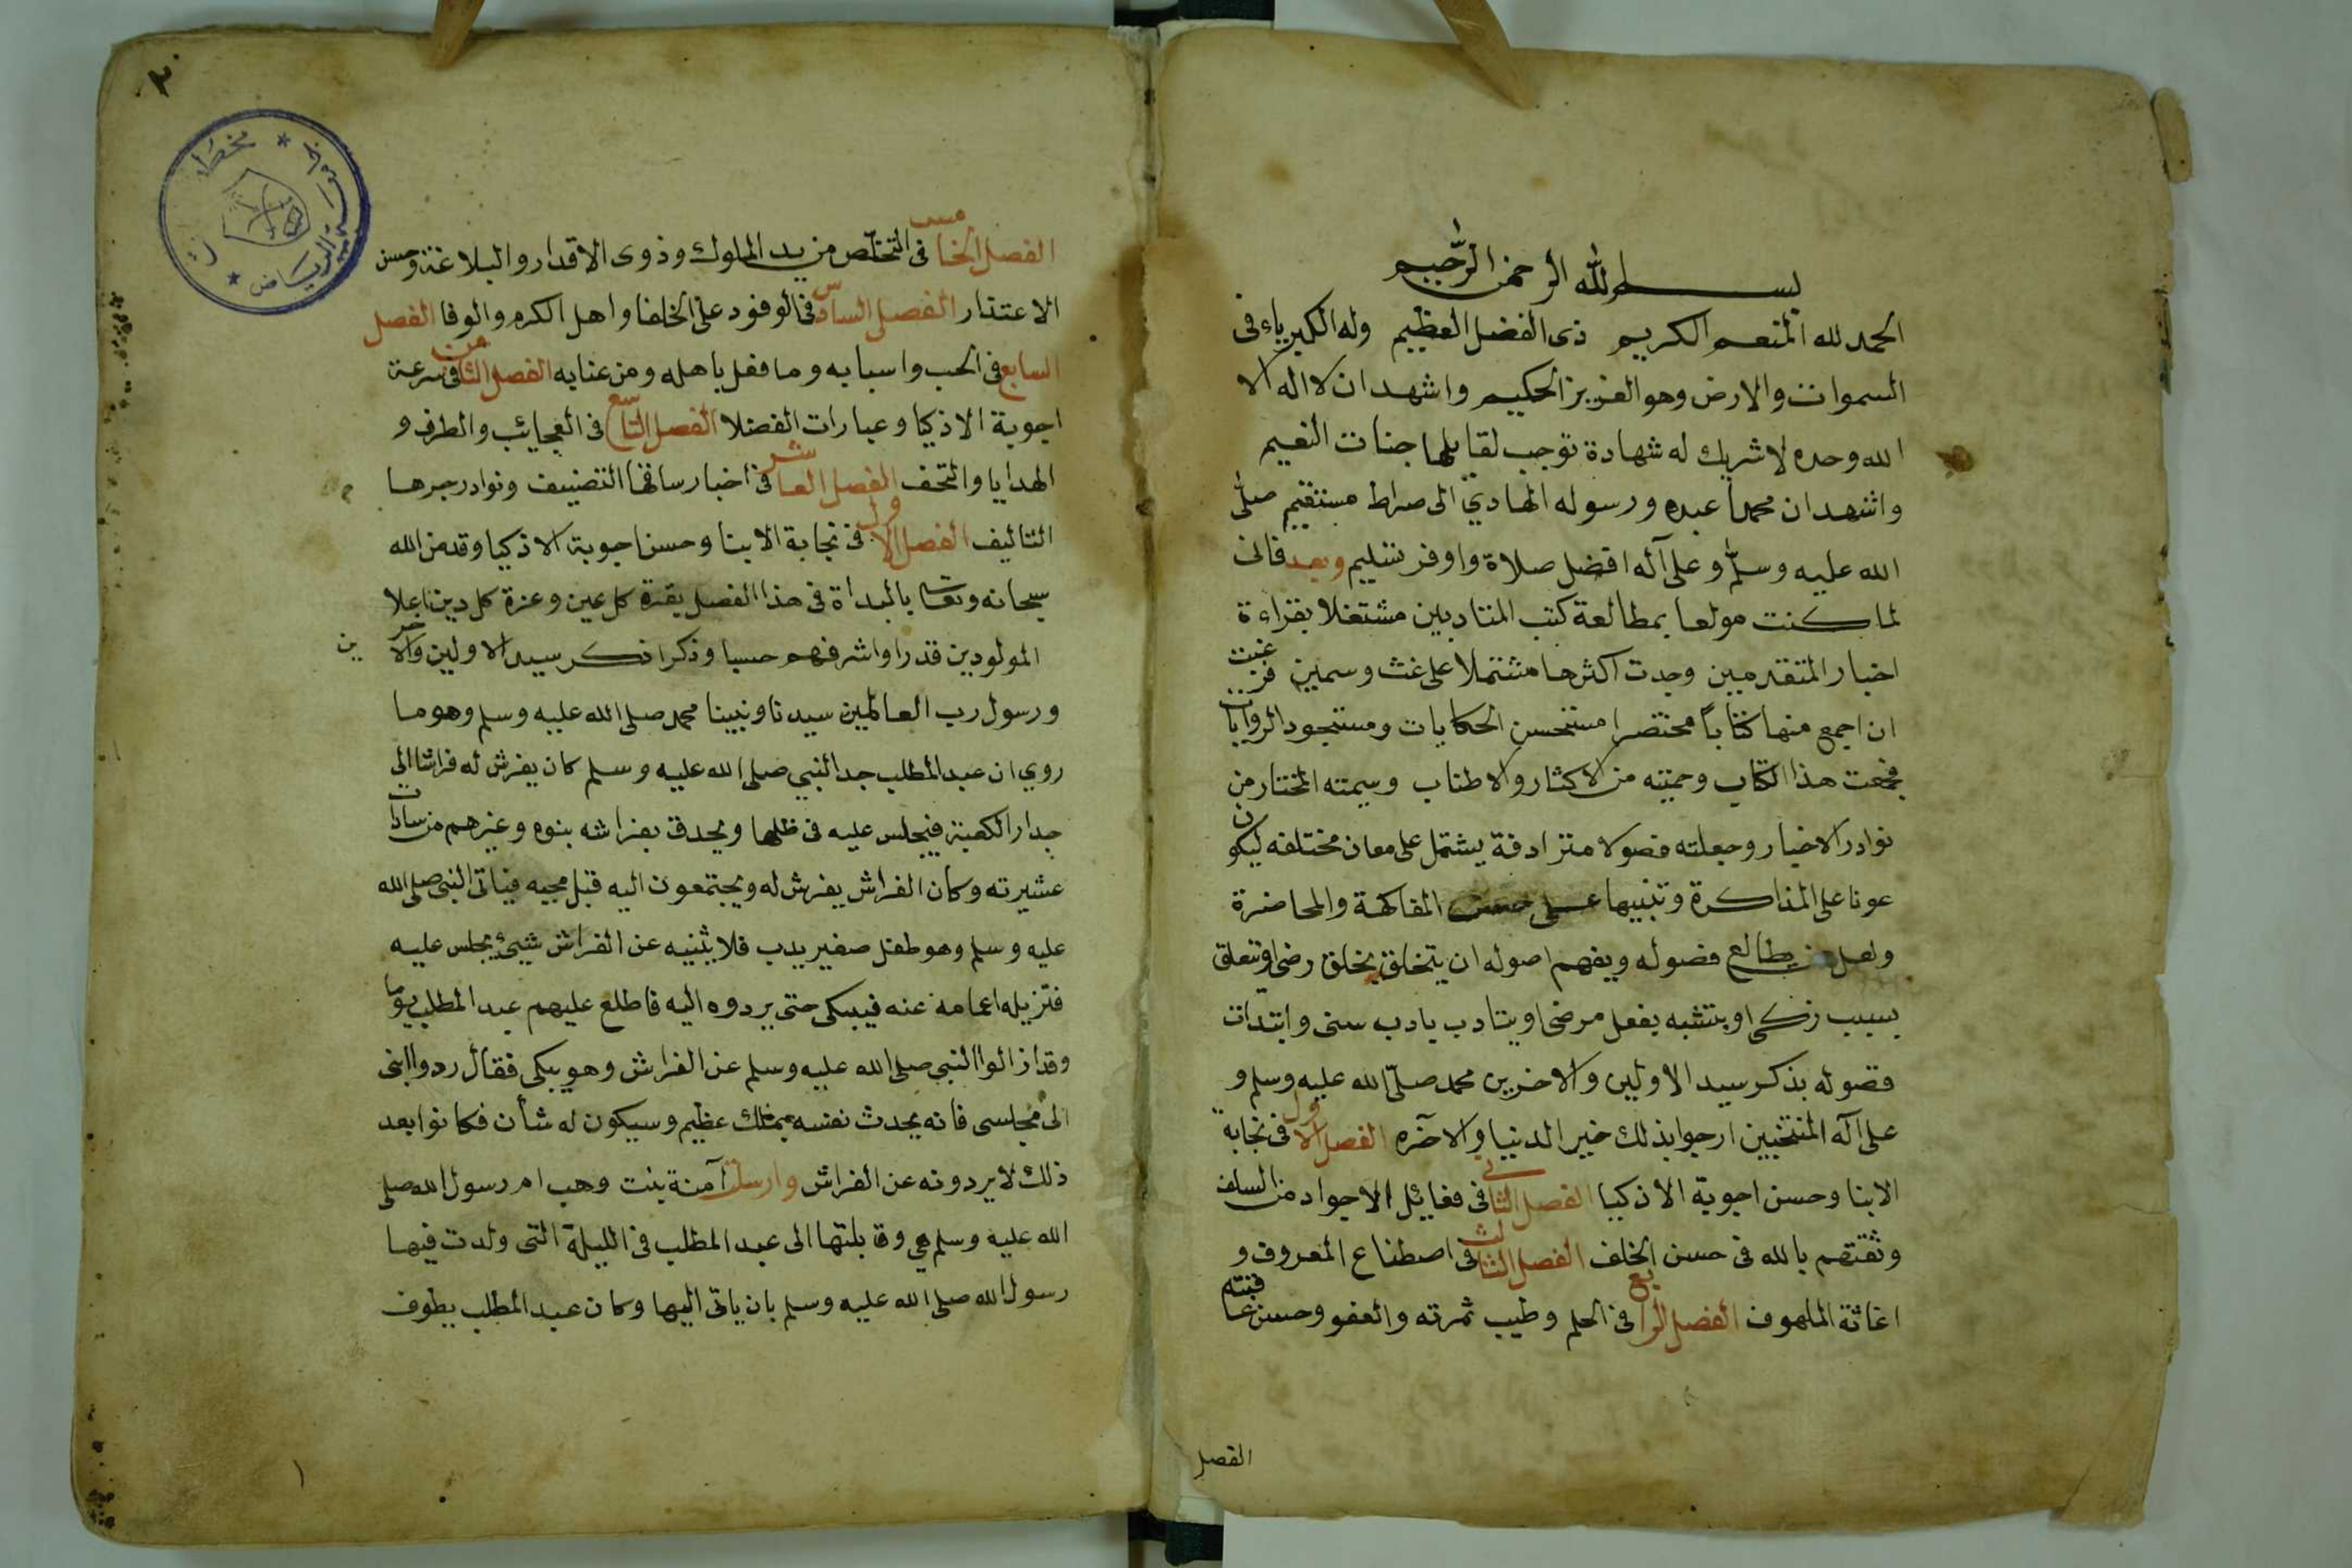 بسم الله الرحمن الرحيم
الحمد لله المنعم الكريم ذى الفضل العظيم وله الكبرياء فى
السموات والارض وهو العزيز الحكيم واشهد ان لا اله الا
الله وحده لا شريك له شهادة توجب لقايلها جنات النعيم
واشهد ان محمدا عبده ورسوله الهادي الى صراط مستقيم صلى
الله عليه وسلم وعلى آله افضل صلاة واوفر تسليم وبعد فانى
لما كنت مولعا بمطالعة كتب المتادبين مشتغلا بقراءة
اخبار المتقدميين وجدت اكثرها مشتملا على غث وسمين فرغبت
ان اجمع منها كتاباً مختصرا مستحسن الحكايات ومستجود الروايات
فجمعت هذا الكتاب وحميته من الاكثار والاطناب وسميته المختار من
نوادر الاخبار وجعلته فصولا مترادفة يشتمل على معان مختلفه ليكون
عونا على المذاكرة وتنبيها على حسن المفاكهة والمحاضرة
ولعل من يطالع فصوله ويفهم اصوله ان يتخلق بخلق رضى او يتعلق
بسبب زكى او يتشبه بفعل مرضى او يتادب بادب سنى وابتدات
فصوله بذكر سيد الاولين والاخرين محمد صلى الله عليه وسلم و
على آله المنتجبين ارجوا بذلك خير الدنيا والاخره الفصل الاول فى نجابة
الابنا وحسن اجوبة الاذكيا الفصل الثانى فى فعايل الاجواد من السلف
وثقتهم بالله فى حسن الخلف الفصل الثالث فى اصطناع المعروف و
اغاثة الملهوف الفصل الرابع فى الحلم وطيب ثمرته والعفو وحسن عاقبته
الفصل
٢
مخطوطات
الرياض
الفصل الخامس فى التخلص من يد الملوك وذوى الاقدار والبلاغة وحسن
الاعتذار الفصل السادس فى الوفود على الخلفا واهل الكرم والوفا الفصل
السابع فى الحب واسبابه وما فعل باهله ومن عنايه الفصل الثامن فى سرعة
اجوبة الاذكيا وعبارات الفضلا الفصل التاسع فى العجائب والطرف و
الهدايا والتحف الفصل العاشر فى اخبار ساقها التصنيف ونوادر جرها
التاليف الفصل الاول فى نجابة الابنا وحسن اجوبة الاذكيا وقد من الله
سبحانه وتعالى بالبداة فى هذا الفصل بقرة كل عين وعزة كل دين اعلا
المولودين قدرا واشرفهم حسبا وذكرا ذكر سيد الاولين والاخرين
ورسول رب العالمين سيدنا ونبينا محمد صلى الله عليه وسلم وهو ما
روي ان عبد المطلب جد النبي صلى الله عليه وسلم كان يفرش له فراشا الى
جدار الكعبة فيجلس عليه فى ظلها ويحدق بفراشه بنوه وغيرهم من سادات
عشيرته وكان الفراش يفرش له ويجتمعون اليه قبل مجيه فياتى النبى صلى الله
عليه وسلم وهو طفل صغير يدب فلا يثنيه عن الفراش شيئ يجلس عليه
فتزيله اعمامه عنه فيبكى حتى يردوه اليه فاطلع عليهم عبد المطلب يوما
وقد ازالوا النبى صلى الله عليه وسلم عن الفراش وهو يبكى فقال ردوا ابنى
الى مجلسى فانه يحدث نفسه بملك عظيم وسيكون له شأن فكانوا بعد
ذلك لا يردونه عن الفراش وارسلت آمنة بنت وهب ام رسول الله صلى
الله عليه وسلم هي وقابلتها الى عبد المطلب فى الليلة التى ولدت فيها
رسول الله صلى الله عليه وسلم بان ياتى اليها وكان عبد المطلب يطوف